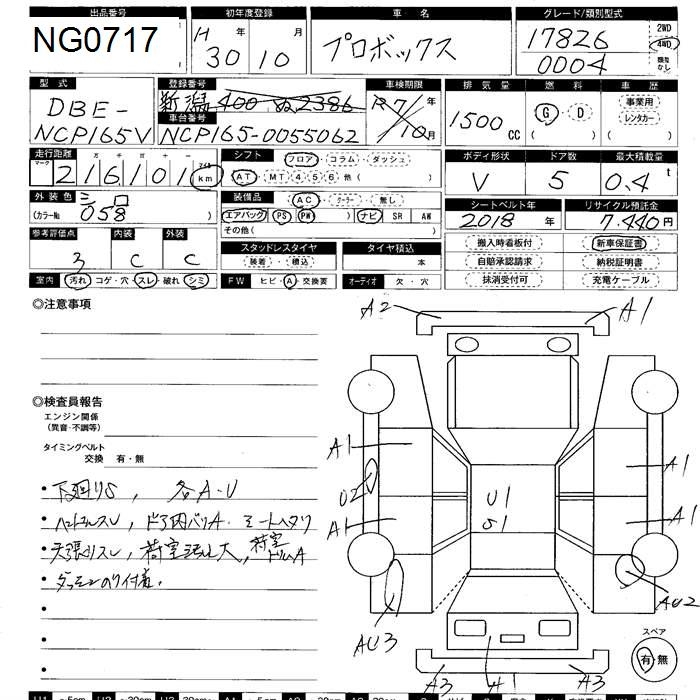 出品番号 初年度登録 車名 グレード/類別型式
NG0717 H 30 10 プロボックス 17826 2WD
0004 4WD
型式 登録番号 車検期限 排気量 燃料 車歴
DBE- 新潟 400 ぬ 2386 R7年 事業用
1500cc G・D レンタカー
車台番号
NCP165V NCP165-0055062 10月
走行距離 シフト フロア・コラム・ダッシュ ボディ形状 ドア数 最大積載量
マーク 十 万 千 百 十 一 マイル
216101 km AT・MT 4 5 6 他( ) V 5 0.4 t
外装色 装備品 AC・クーラー・無し シートベルト年 リサイクル預託金
(カラーNo 058 ) エアバッグ PS PW ナビ SR AW 2018年 7,440円
その他( )
参考評価点 内装 外装 スタッドレスタイヤ タイヤ積込 搬入時看板付 新車保証書
3 C C 装着・積込 本 自賠承認請求 納税証明書
室内 汚れ コゲ・穴 スレ・破れ シミ FW ヒビ・A・交換要 オーディオ 欠・穴 抹消受付可 充電ケーブル
◎注意事項
A2 A1
◎検査員報告
エンジン関係
(異音・不調等)
タイミングベルト
交換 有・無
A1 A1
・下廻りS, 各A・U
U2 U1
S1
・ハンドルスレ, ドア内バリA・シートヘタリ
A1 A1
・天張りスレ, 荷室汚れ大, 荷室トリムA
・ダッシュのり付着.
AU3 AU2
スペア
有・無
A3 A1 A3